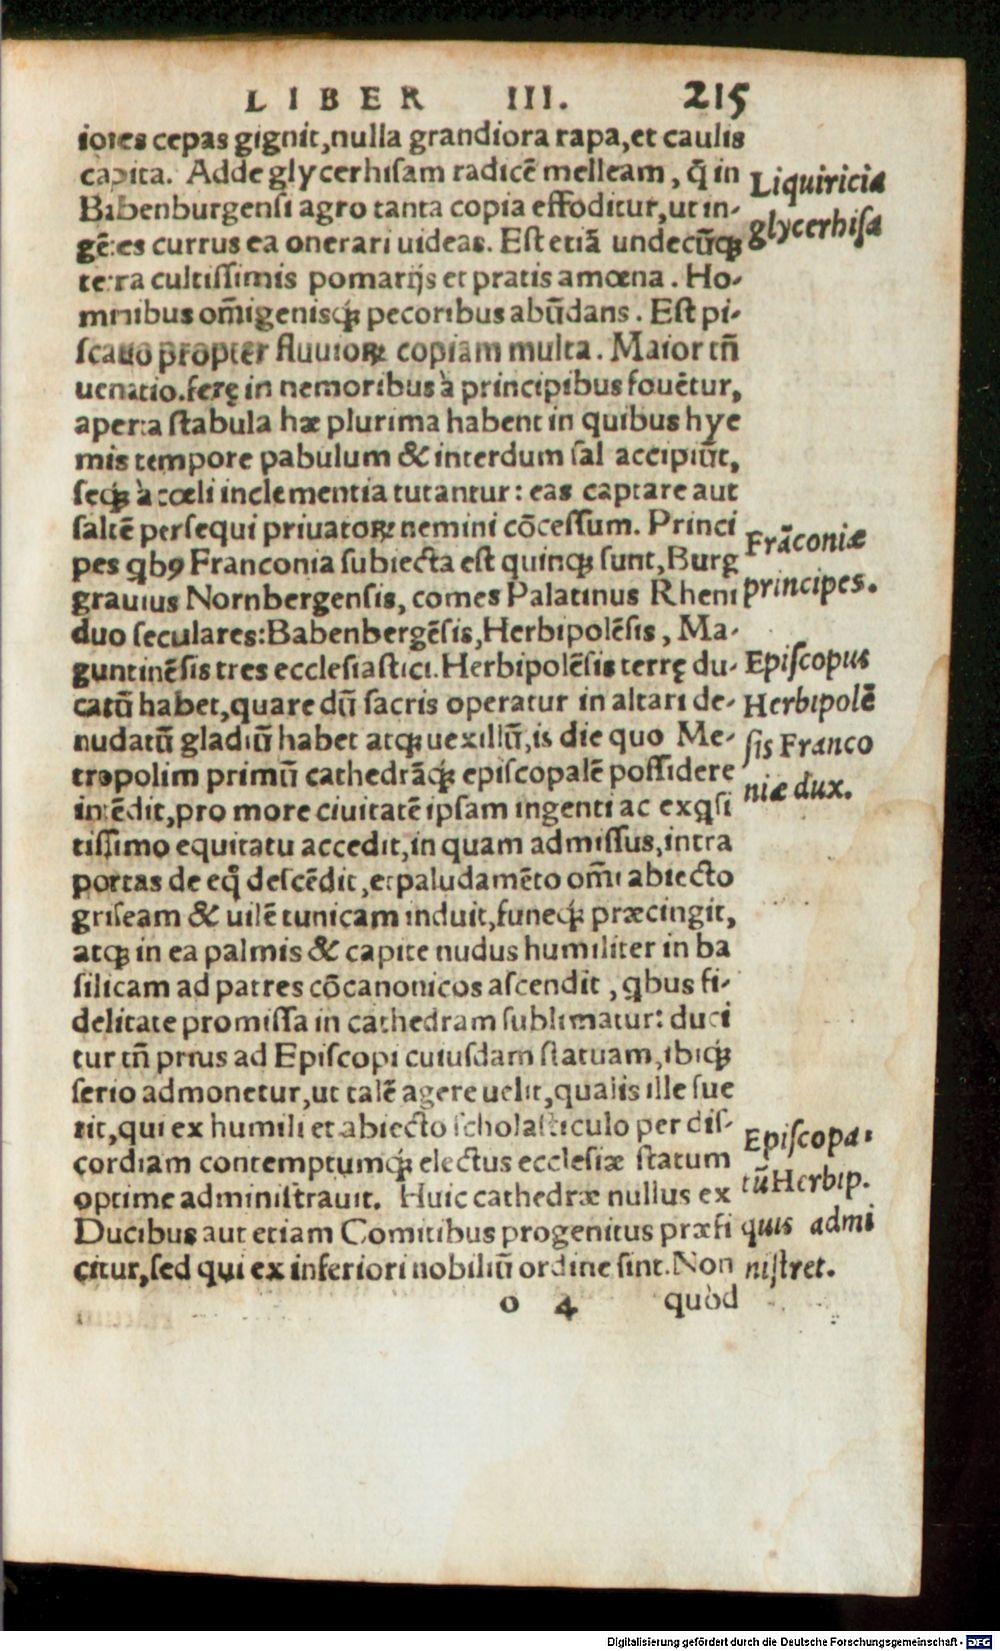 LIBER III. 215
iores cepas gignit, nulla grandiora rapa, et caulis
capita. Adde glycerhisam radicē melleam, q̄ in
Babenburgensi agro tanta copia effoditur, ut in-
gētes currus ea onerari uideas. Est etiā undecūq;
terra cultissimis pomarijs et pratis amœna. Ho-
minibus om̄igenisq; pecoribus abūdans. Est pi-
scatio propter fluuioꝝ copiam multa. Maior tn̄
uenatio. ferę in nemoribus à principibus fouētur,
aperta stabula hæ plurima habent in quibus hye
mis tempore pabulum & interdum sal accipiūt,
seq; à cœli inclementia tutantur: eas captare aut
saltē persequi priuatoꝝ nemini cōcessum. Princi
pes qb9 Franconia subiecta est quinq; sunt, Burg
grauius Nornbergensis, comes Palatinus Rheni
duo seculares: Babenbergēsis, Herbipolēsis, Ma-
guntinēsis tres ecclesiastici. Herbipolēsis terrę du-
catū habet, quare dū sacris operatur in altari de-
nudatū gladiū habet atq; uexillū, is die quo Me-
tropolim primū cathedrāq; episcopalē possidere
intēdit, pro more ciuitatē ipsam ingenti ac exqsi
tissimo equitatu accedit, in quam admissus, intra
portas de eq̄ descēdit, et paludamēto om̄i abiecto
griseam & uilē tunicam induit, funeq; præcingit,
atq; in ea palmis & capite nudus humiliter in ba
silicam ad patres cōcanonicos ascendit, qbus fi-
delitate promissa in cathedram sublimatur: duci
tur tn̄ prius ad Episcopi cuiusdam statuam, ibiq;
serio admonetur, ut talē agere uelit, qualis ille fue
rit, qui ex humili et abiecto scholasticulo per dis-
cordiam contemptumq; electus ecclesiæ statum
optime administrauit. Huic cathedræ nullus ex
Ducibus aut etiam Comitibus progenitus præfi
citur, sed qui ex inferiori nobiliū ordine sint. Non
o 4 quòd
Liquiricia
glycerhisa
Frācōniæ
principes.
Episcopus
Herbipolē
sis Franco
niæ dux.
Episcopa-
tū Herbip.
quis admi
nistret.
Digitalisierung gefördert durch die Deutsche Forschungsgemeinschaft - DFG